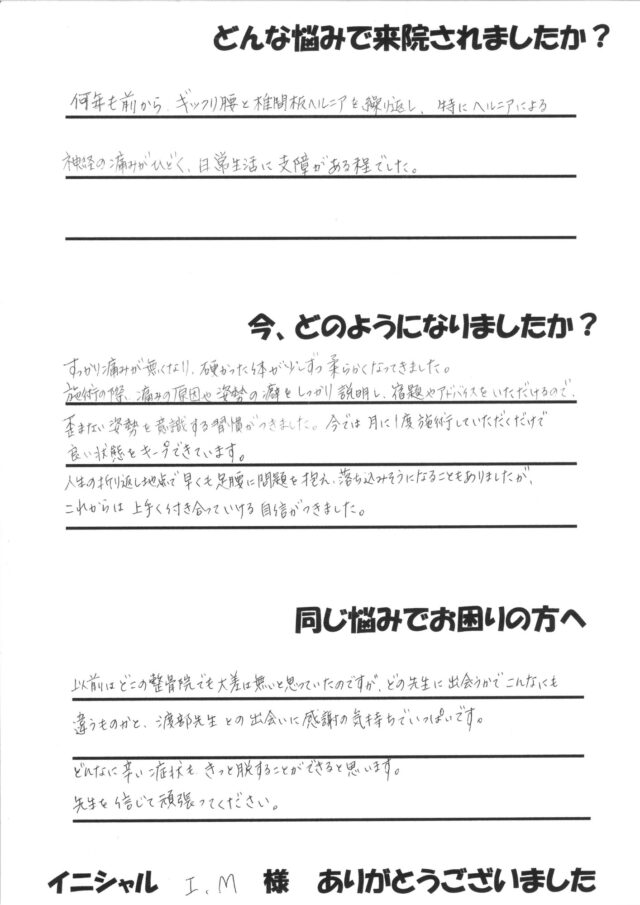 どんな悩みで来院されましたか？
何年も前から、ギックリ腰と椎間板ヘルニアを繰り返し、特にヘルニアによる
神経の痛みがひどく、日常生活に支障がある程でした。
今、どのようになりましたか？
すっかり痛みが無くなり、硬かった体が少しずつ柔らかくなってきました。
施術の際、痛みの原因や姿勢の癖をしっかり説明し、宿題やアドバイスをいただけるので、
歪まない姿勢を意識する習慣がつきました。今では月に1度施術していただくだけで
良い状態をキープできています。
人生の折り返し地点で早くも足腰に問題を抱え、落ち込みそうになることもありましたが、
これからは上手く付き合っていける自信がつきました。
同じ悩みでお困りの方へ
以前はどこの整骨院でも大差は無いと思っていたのですが、どの先生に出会うかでこんなにも
違うものかと、渡部先生との出会いに感謝の気持ちでいっぱいです。
どんなに辛い症状も、きっと脱することができると思います。
先生を信じて頑張ってください。
イニシャル I.M 様 ありがとうございました